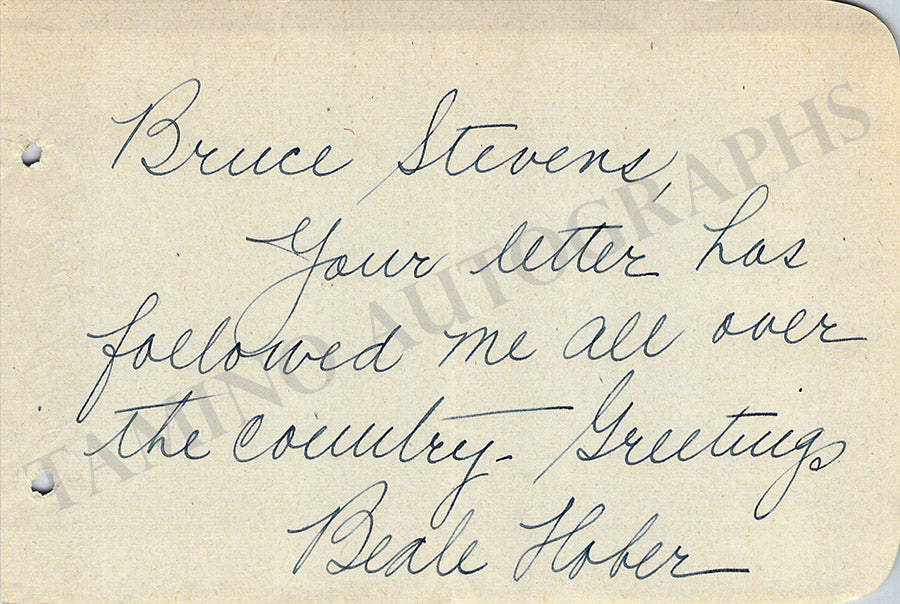 Bruce Stevens,
Your letter has
followed me all over
the country- Greetings
Beale Hober
TAMINO AUTOGRAPHS